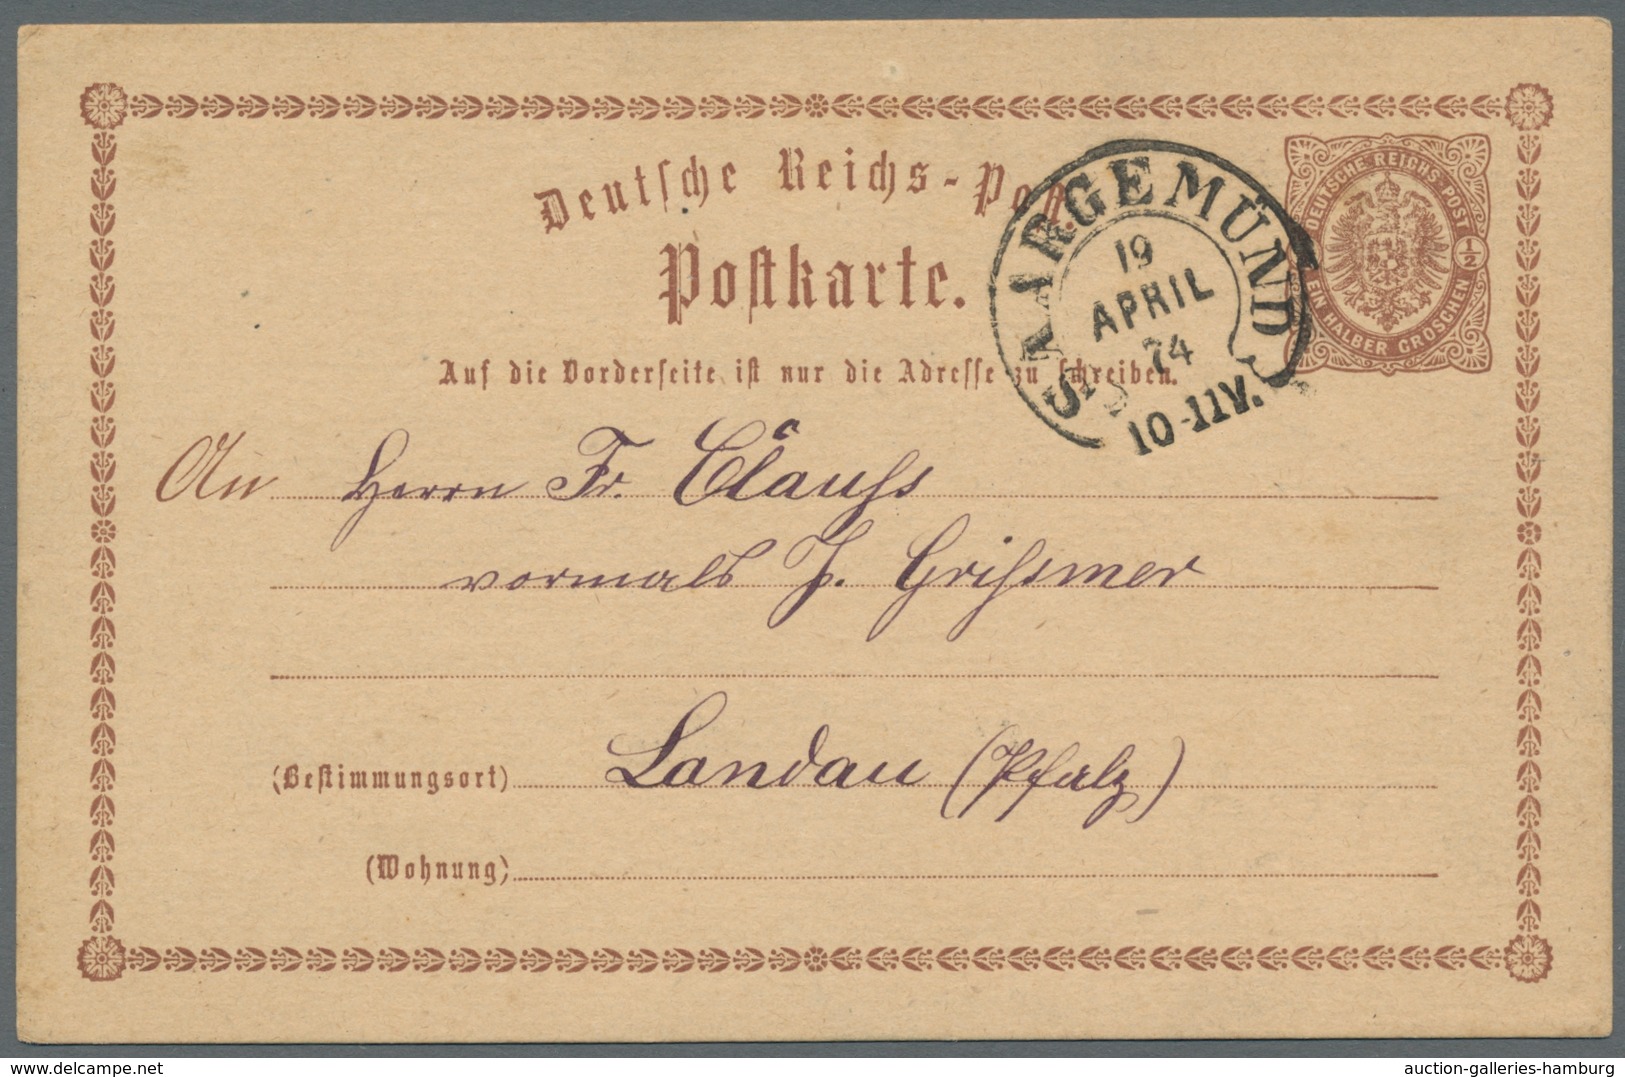 Deutsche Reichs-Post.
Postkarte.
DEUTSCHE REICHS-POST
1/2
EIN HALBER GROSCHEN
SAARGEMÜND
19
APRIL
74
10-11V.
Auf die Vorderseite ist nur die Adresse zu schreiben.
An Herrn Fr. Clauss
vormals J. Grissmer
(Bestimmungsort) Landau (Pfalz)
(Wohnung)
www.delcampe.net
auction-galleries-hamburg